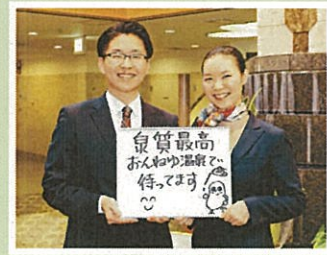 泉質最高
おんねゆ温泉で
待ってます